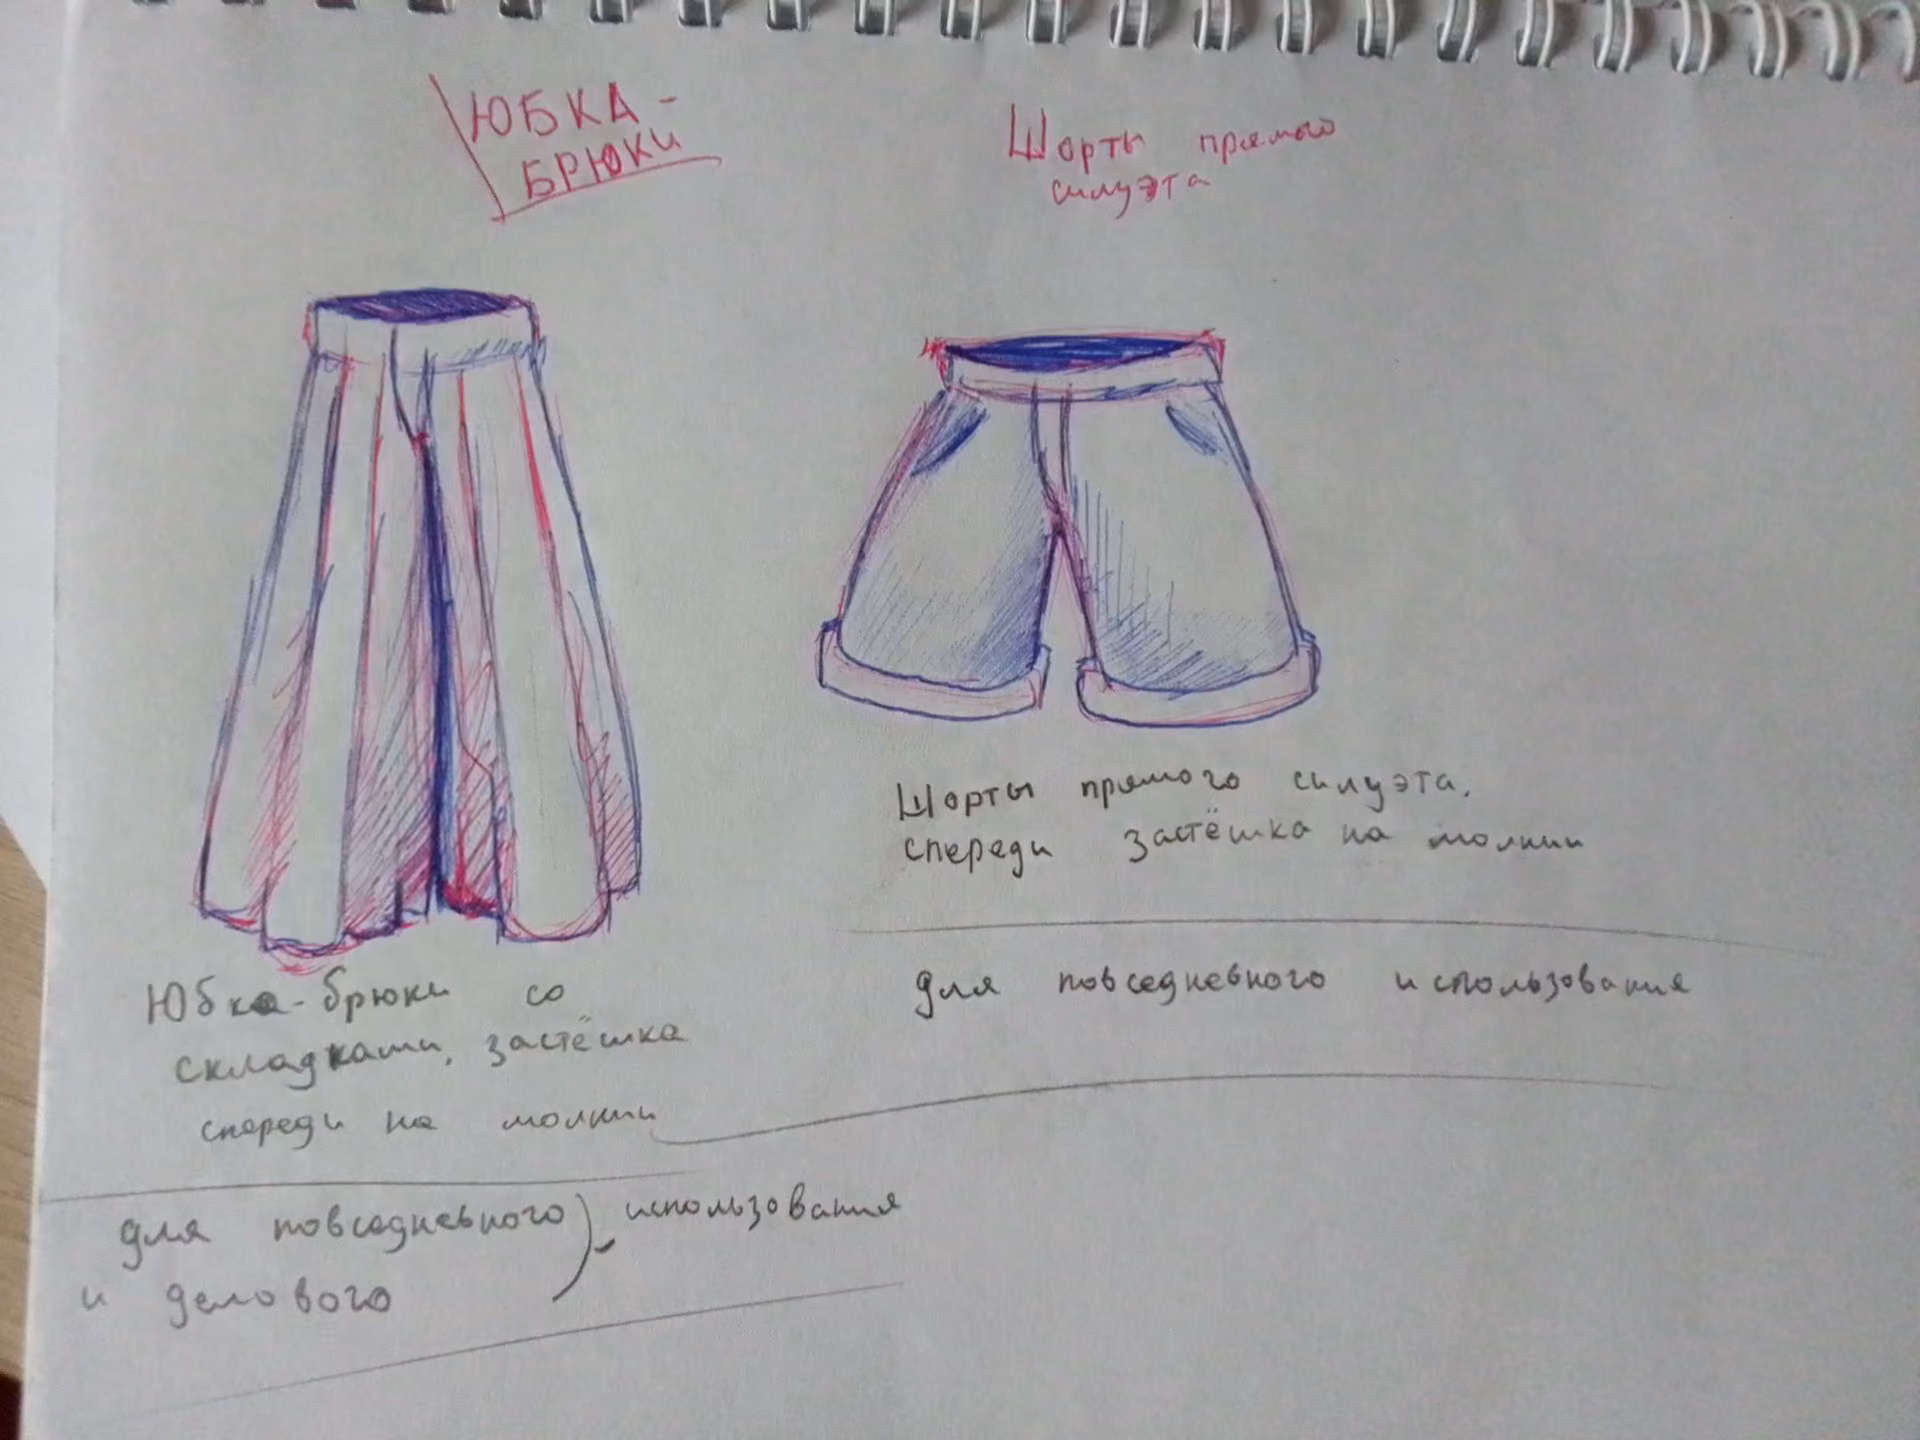 ЮБКА -
БРЮКИ
Шорты прямого
силуэта
Шорты прямого силуэта,
спереди застёшка на молнии
для повседневного использования
Юбка-брюки со
складками, застёшка
спереди на молнии
для повседневного использования
и делового